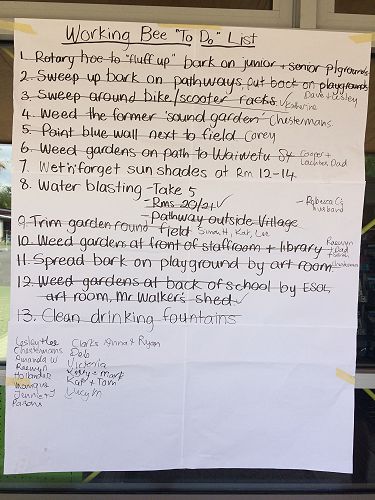 Working Bee "To Do" List
1. Rotary hoe to "fluff up" bark on junior + senior plgrounds
2. Sweep up bark on pathways, put back on playgrounds
3. Sweep around bike/scooter racks. ✓ Katherine Dave + Lesley
4. Weed the former 'sound garden' Chestermans.
5. Paint blue wall next to field Corey
6. Weed gardens on path to Waiwetu St Cooper + Lachlan, Dad
7. Wet'n'forget sun shades at Rm 12-14
8. Water blasting - Take 5
- Rms 20/21 ✓ - Rebecca C's husband
- Pathway outside Village
9. Trim garden round field Simon H, Kat, Lee
10. Weed garden at front of staffroom + library Raewyn + Dad
11. Spread bark on playground by art room
12. Weed gardens at back of school by ESOL
art room, Mr Walkers shed ✓
13. Clean drinking fountains
Lesley + Lee Clarks Anna + Ryan
Chestermans Deb
Amanda W Victoria
Raewyn Kelly + Mark
Hollander Kat + Tom
Monique Lucy M
Jennie J
Parsons